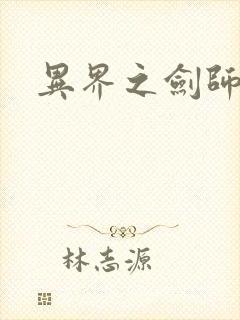 異界之劍師
林志源